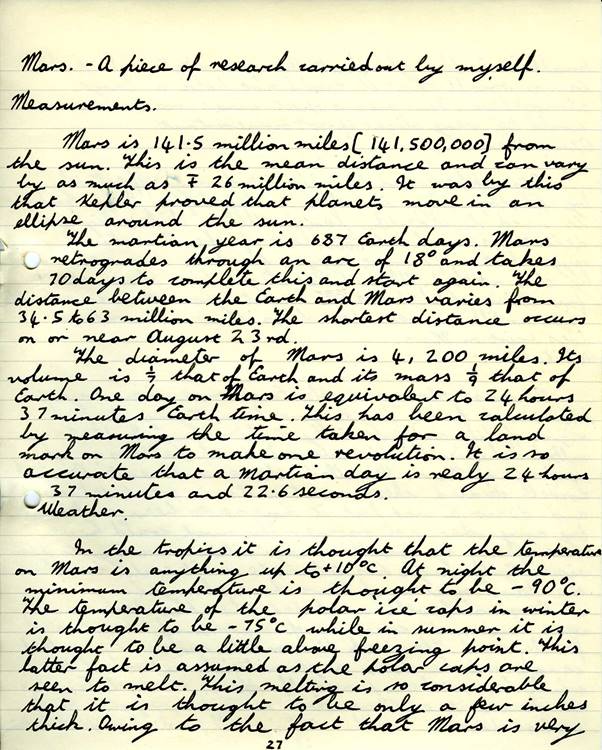 Mars. - A piece of research carried out by myself.
Measurements.
Mars is 141.5 million miles [141,500,000] from
the sun. This is the mean distance and can vary
by as much as ∓ 26 million miles. It was by this
that Kepler proved that planets move in an
ellipse around the sun.
The martian year is 687 Earth days. Mars
retrogrades through an arc of 18° and takes
70 days to complete this and start again. The
distance between the Earth and Mars varies from
34.5 to 63 million miles. The shortest distance occurs
on or near August 23rd.
The diameter of Mars is 4,200 miles. Its
volume is 1/7 that of Earth and its mass 1/9 that of
Earth. One day on Mars is equivalent to 24 hours
37 minutes Earth time. This has been calculated
by measuring the time taken for a land
mark on Mars to make one revolution. It is so
accurate that a Martian day is realy 24 hours
37 minutes and 22.6 seconds.
Weather.
In the tropics it is thought that the temperature
on Mars is anything up to +10°C. At night the
minimum temperature is thought to be -90°C.
The temperature of the polar ice caps in winter
is thought to be -75°C while in summer it is
thought to be a little above freezing point. This
latter fact is assumed as the polar caps are
seen to melt. This melting is so considerable
that it is thought to be only a few inches
thick. Owing to the fact that Mars is very
27